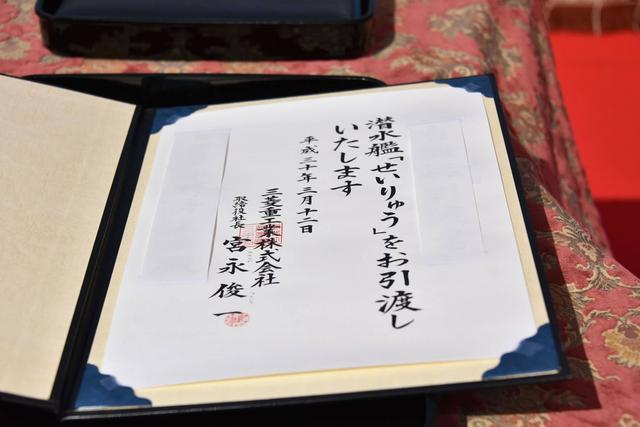 潜水艦「せいりゅう」をお引渡し
いたします
平成三十年三月十二日
三菱重工業株式会社
取締役社長 宮永俊一